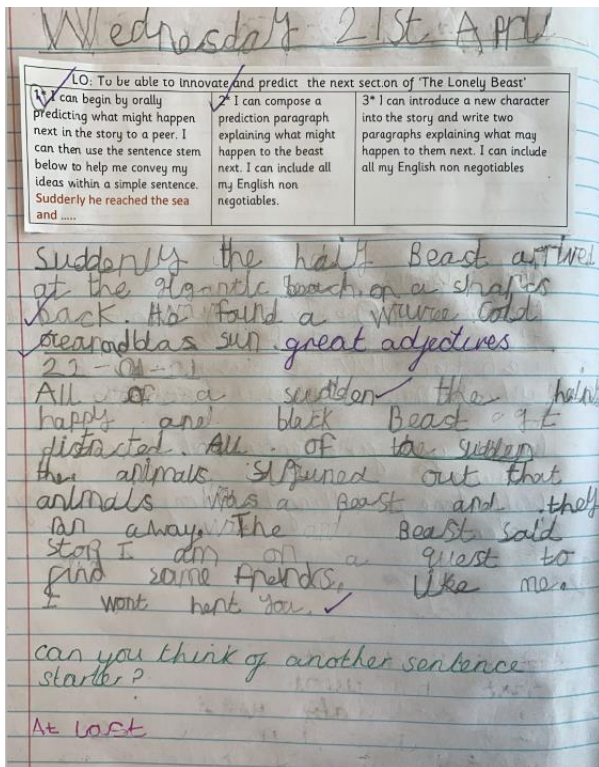 Wednesday 21st April
LO: To be able to innovate and predict the next section of 'The Lonely Beast'
1* I can begin by orally
predicting what might happen
next in the story to a peer. I
can then use the sentence stem
below to help me convey my
ideas within a simple sentence.
Suddenly he reached the sea
and .....
2* I can compose a
prediction paragraph
explaining what might
happen to the beast
next. I can include all
my English non
negotiables.
3* I can introduce a new character
into the story and write two
paragraphs explaining what may
happen to them next. I can include
all my English non negotiables
Suddenly the haiy Beast arrived
at the gigantic beach on a sharks
back. He found a cold
sun. great adjectives
22-04-21
All of a sudden the
happy and black Beast
distracted. All of the sudden
the animals out that
animals was a Beast and they
ran away. The Beast said
stop I am on a quest to
find some Like me.
I wont you.
can you think of another sentence
starter?
At Last